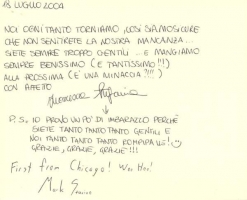 18 LUGLIO 2004
NOI OGNI TANTO TORNIAMO, COSÌ SIAMO SICURE
CHE NON SENTIRETE LA NOSTRA MANCANZA...
SIETE SEMPRE TROPPO GENTILI ... E MANGIAMO
SEMPRE BENISSIMO (E TANTISSIMO!!!)
ALLA PROSSIMA (E' UNA MINACCIA?!!!)
CON AFFETTO
Francesca Stefania
P.S. IO PROVO UN PO' DI IMBARAZZO PERCHÉ
SIETE TANTO TANTO TANTO GENTILI E
NOI TANTO TANTO TANTO ROMPIPALLE!
GRAZIE, GRAZIE, GRAZIE!!!
First from Chicago! Woo Hoo!
Mark